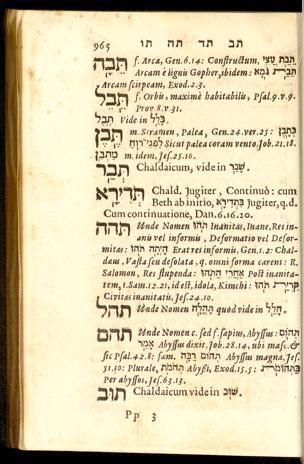 965 תב תד תה תו
תֵּבָה f. Arca, Gen. 6.14: Constructum, תֵּבַת עֲצֵי
Arcam è lignis Gopher, ibidem: תֵּבַת גֹּמֶא
Arcam scirpeam, Exod. 2.3.
תֵּבֵל f. Orbis: maximè habitabilis, Psal. 9. v. 9.
Prov 8. v. 31.
תֶּבֶל Vide in בָּלַל.
תֶּבֶן m. Stramen, Palea, Gen. 24. ver. 25: כְּתֶבֶן
לִפְנֵי־רוּחַ Sicut palea coram vento, Job. 21. 18.
מַתְבֵּן m. idem, Jes. 25. 10.
תְּבַר Chaldaicum, vide in שָׁבַר.
תְּדִירָא Chald. Jugiter, Continuò: cum
Beth ab initio, בִּתְדִירָא Jugiter, q. d.
Cum continuatione, Dan. 6. 16. 20.
תהה Unde Nomen תֹּהוּ Inanitas, Inane, Res in-
anis vel informis, Deformatio vel Defor-
mitas: הָיְתָה תֹהוּ Erat res informis, Gen. 1. 2: Chal-
daus, Vasta seu desolata, q. omni forma carens: R.
Salomon, Res stupenda: אַחֲרֵי הַתֹּהוּ Post inanita-
tem, 1. Sam. 12. 21, id est, idola, Kimchi: קִרְיַת־תֹּהוּ
Civitas inanitatis, Jes. 24. 10.
תהל Unde Nomen תָּהֳלָה quod vide in הָלַל.
תהם Unde Nomen c. sed f. sæpius, Abyssus: תְּהוֹם
אָמַר Abyssus dixit, Job. 28. 14, ubi masc. &
sic Psal. 42. 8: fœm. תְּהוֹם רַבָּה Abyssus magna, Jes.
51. 10: Plurale, תְּהֹמֹת Abyssi, Exod. 15. 5: בַּתְּהֹמוֹת
Per abyssos, Jes. 63. 13.
תּוּב Chaldaicum vide in שׁוּב.
Pp 3